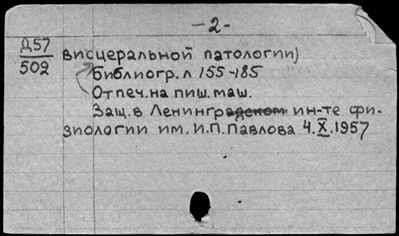 -2-
Д57
502
висцеральной патологии)
Библиогр. л 155-185
Отпеч. на пиш. маш.
Защ. в Ленинградском ин-те фи-
зиологии им. И.П. Павлова 4.X.1957